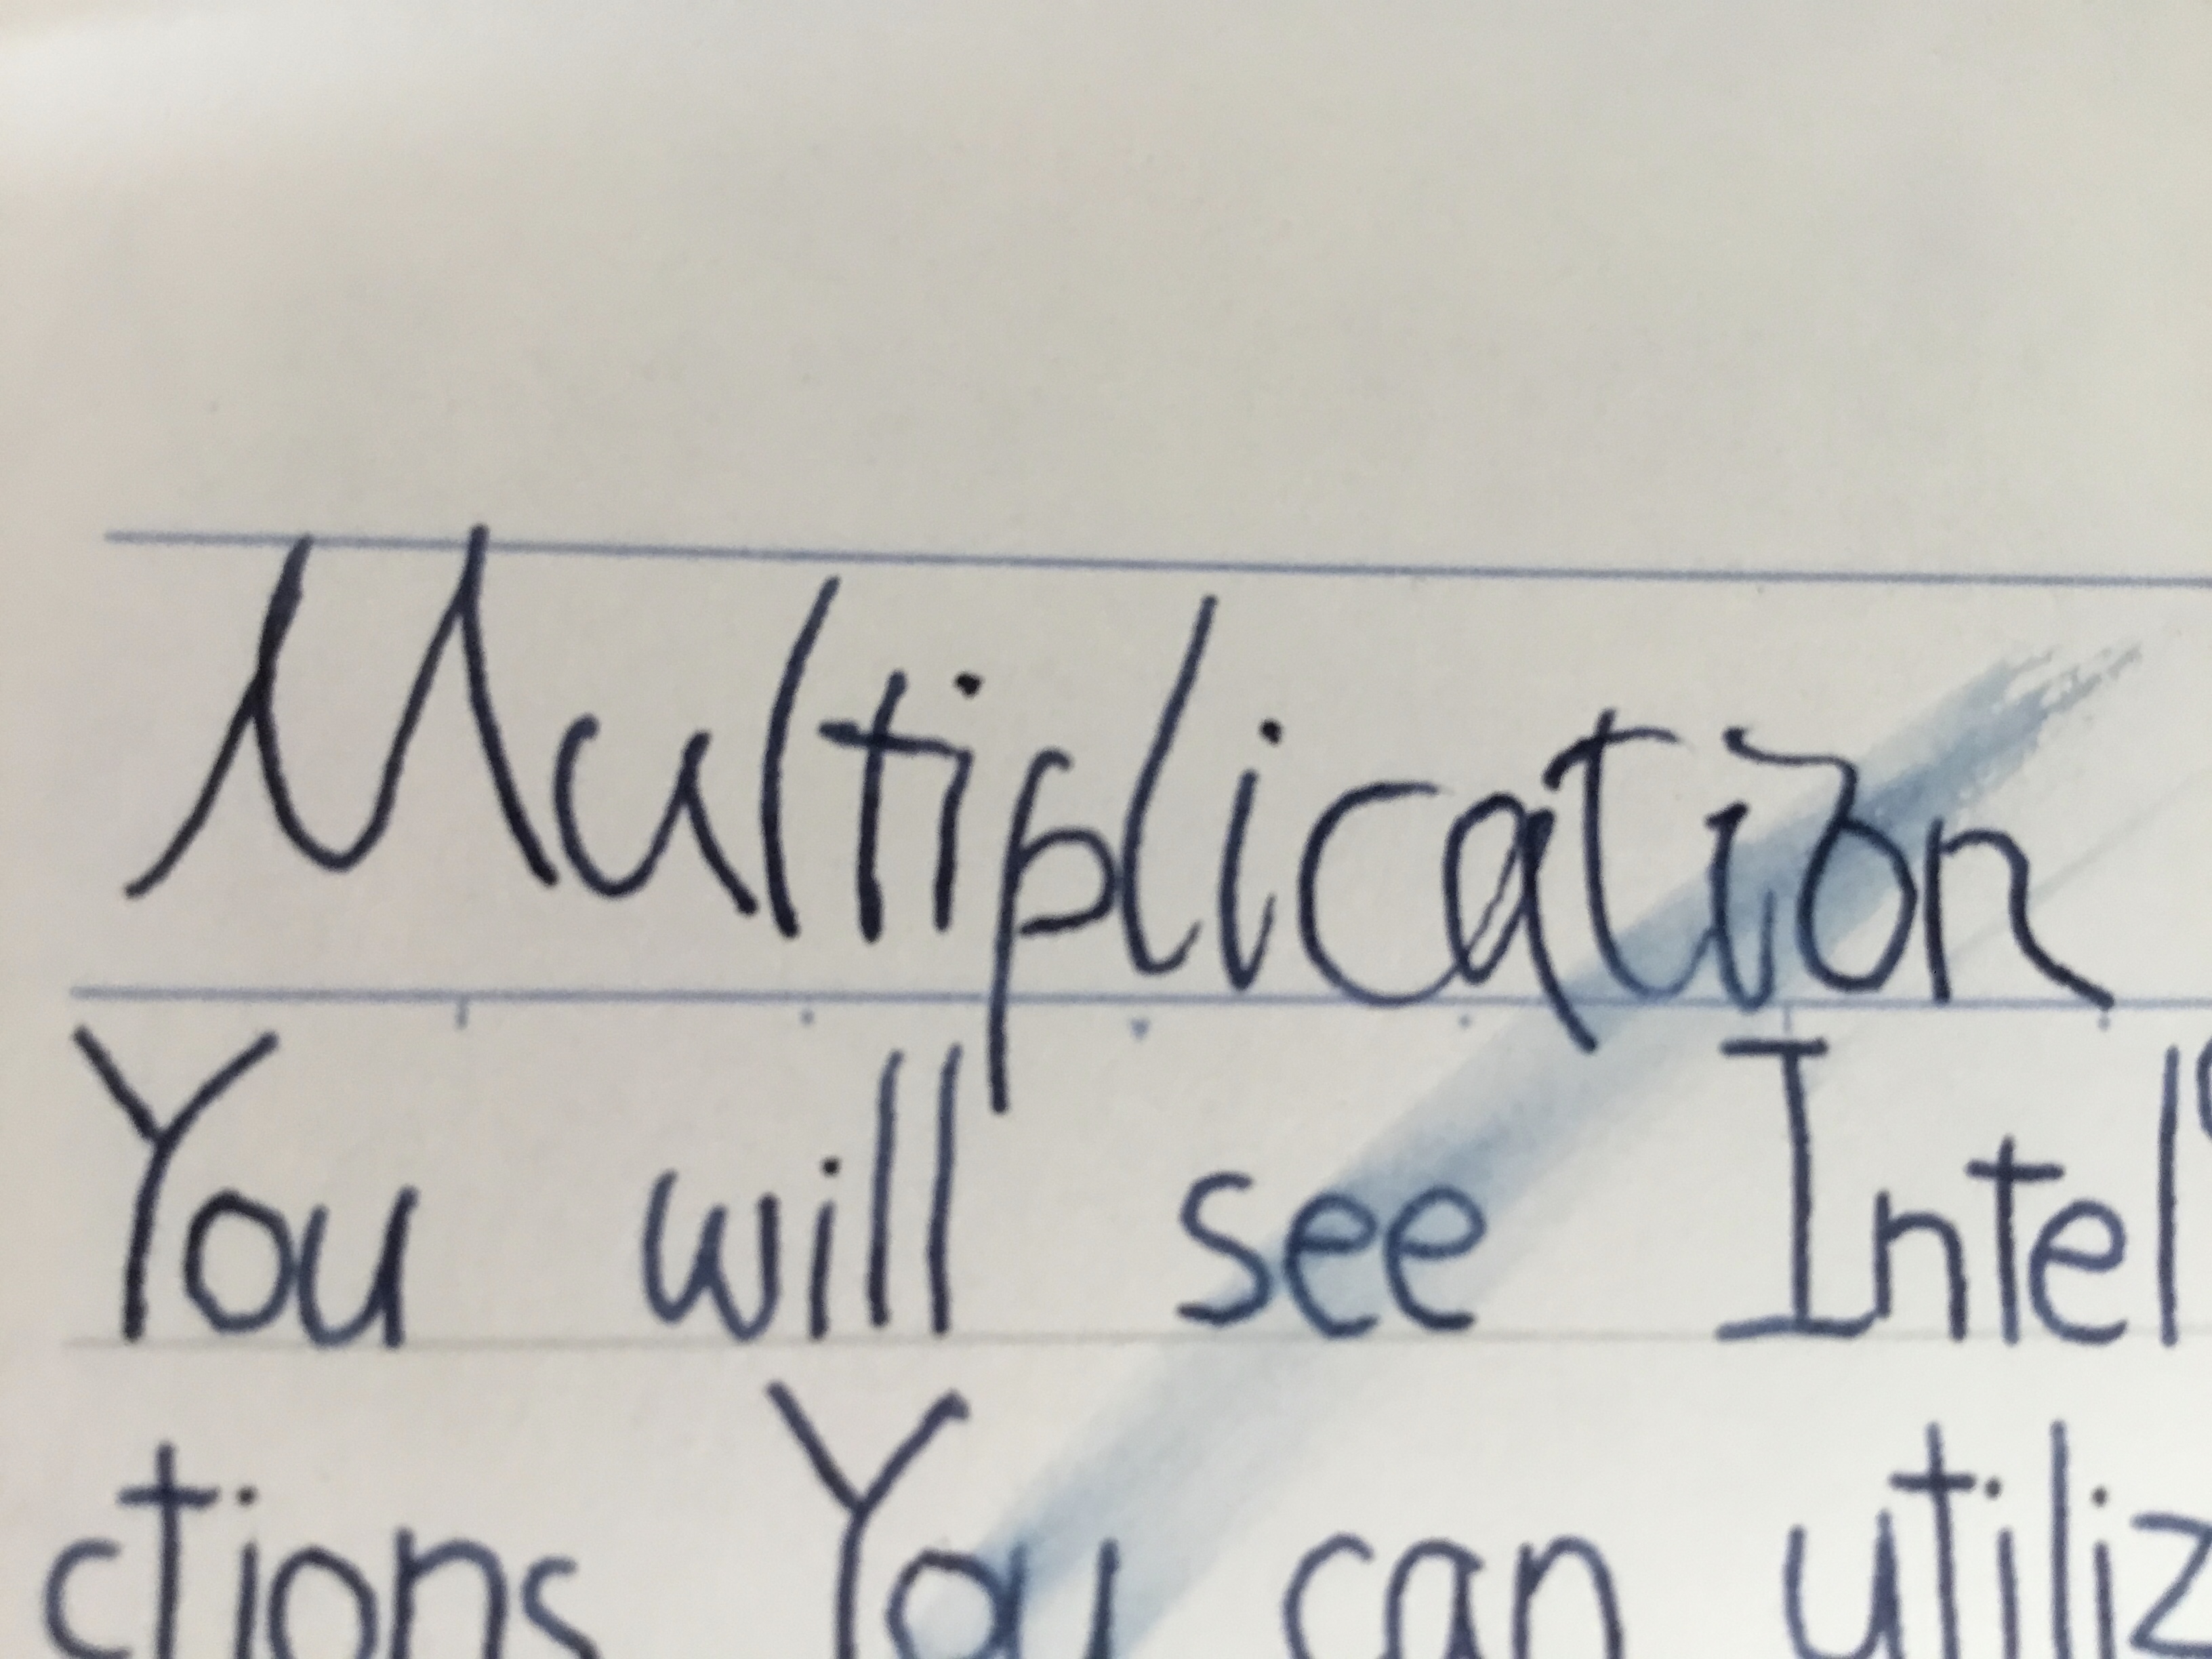 Multiplication
You will see Intel
ctions You can utiliz